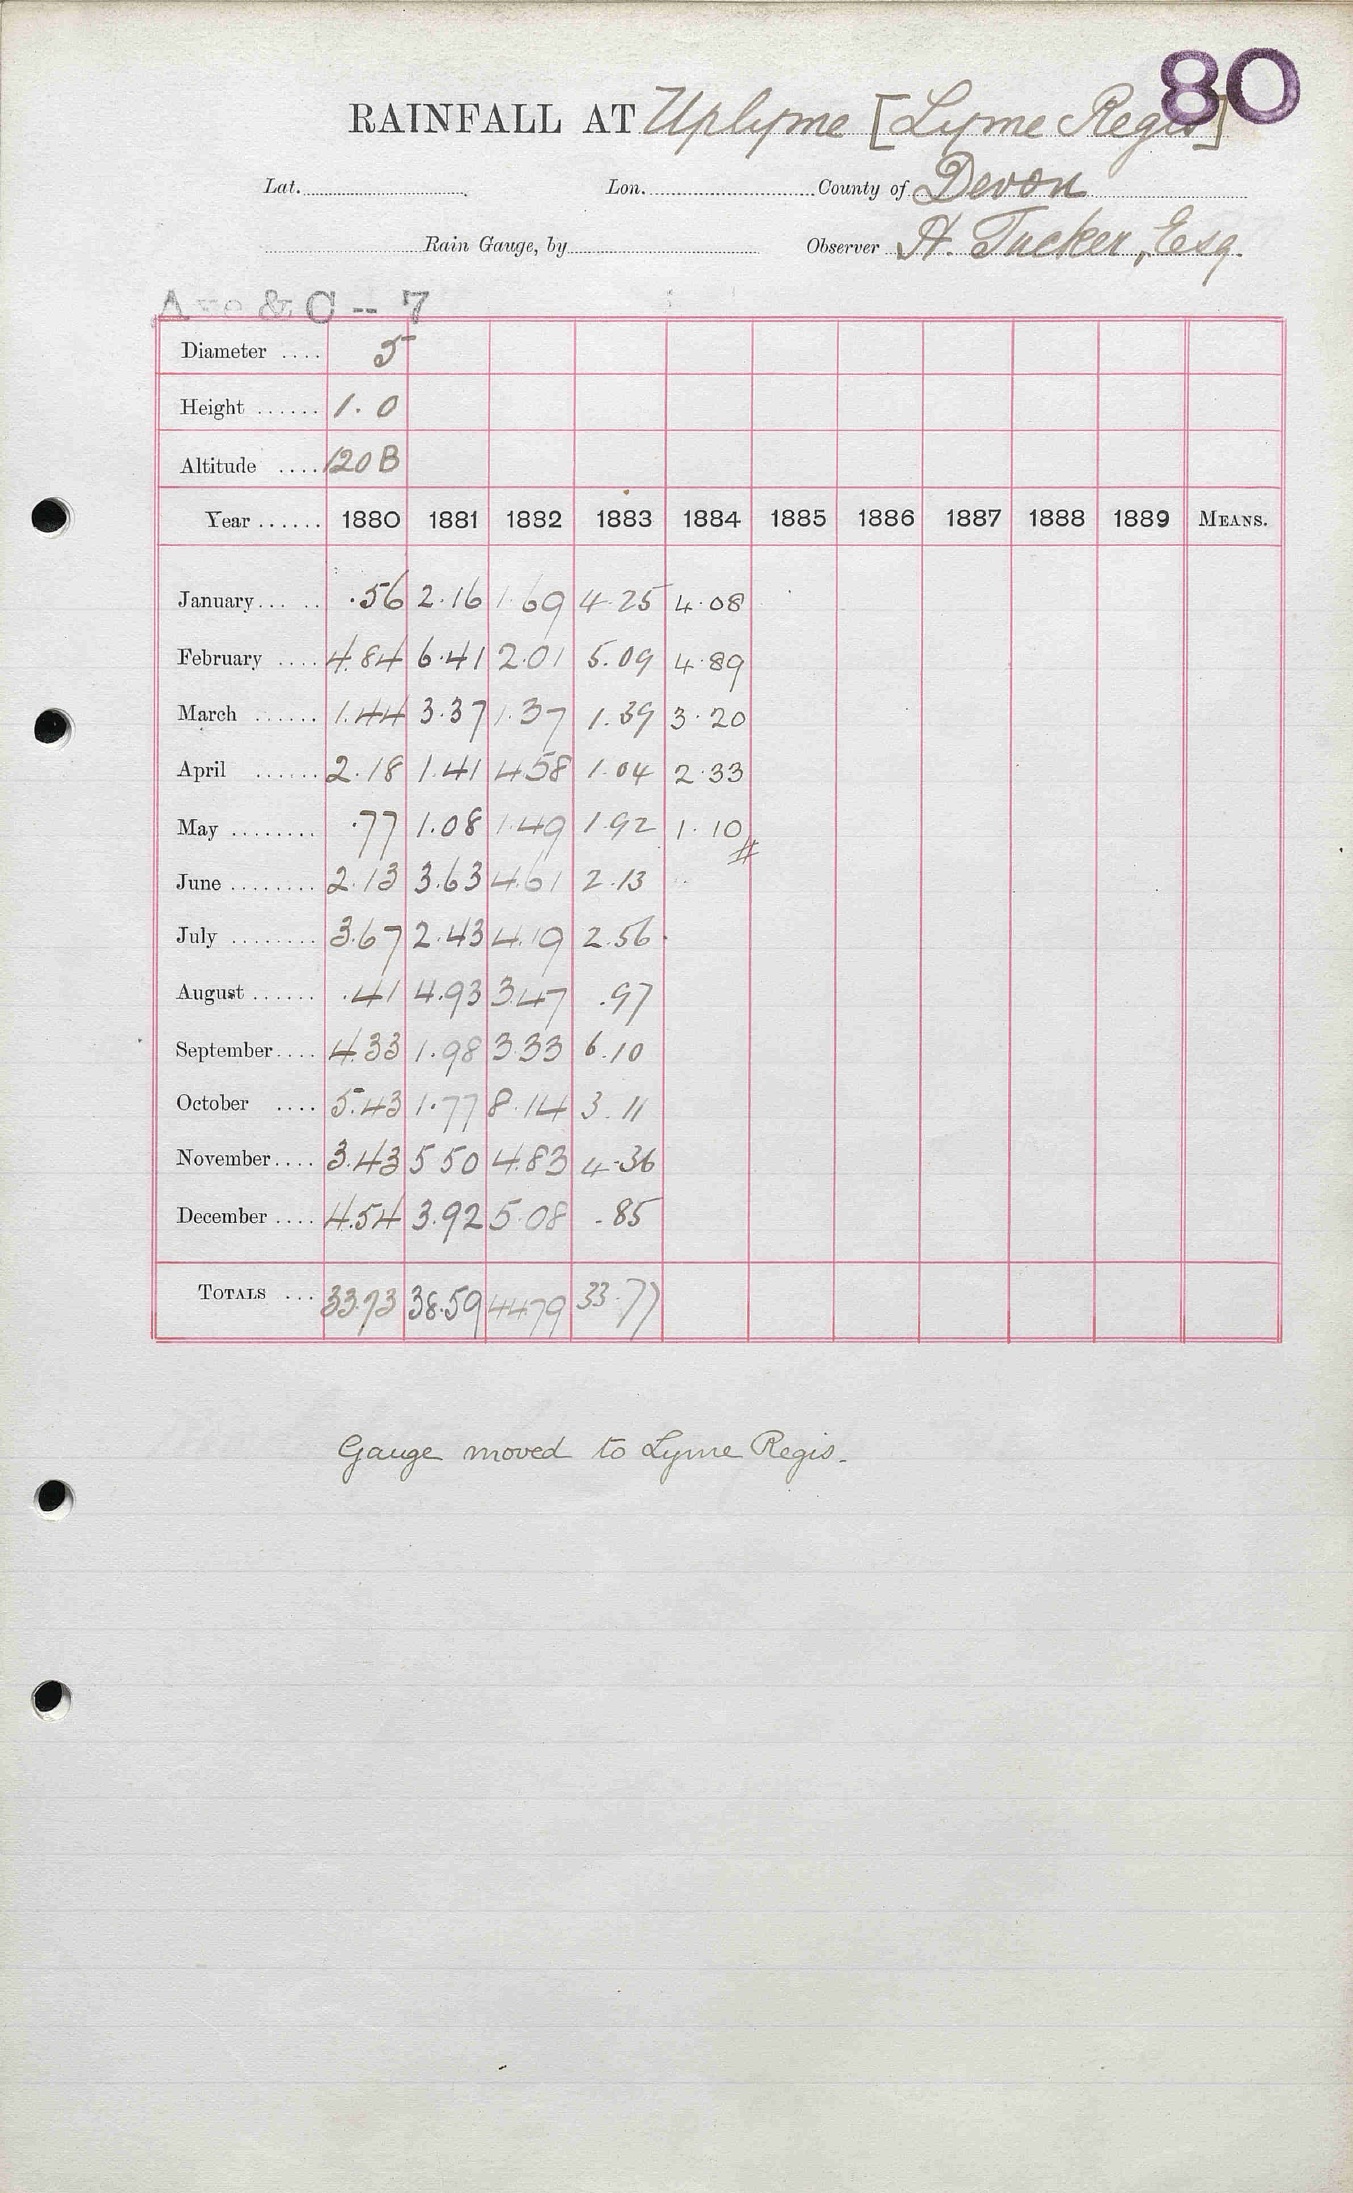 80
RAINFALL AT Uplyme [Lyme Regis]
Lat. Lon. County of Devon
Rain Gauge, by Observer H. Tucker, Esq.
& C -- 7
Diameter .... 5
Height ...... 1.0
Altitude .... 120 B
Year ...... 1880 1881 1882 1883 1884 1885 1886 1887 1888 1889 MEANS.
January... .. .56 2.16 1.69 4.25 4.08
February .... 4.84 6.41 2.01 5.09 4.89
March ...... 1.44 3.37 1.37 1.39 3.20
April ...... 2.18 1.41 4.58 1.04 2.33
May ........ .77 1.08 1.49 1.92 1.10
#
June ........ 2.13 3.63 4.61 2.13
July ........ 3.67 2.43 4.19 2.56
August ...... .41 4.93 3.47 .97
September.... 4.33 1.98 3.33 6.10
October .... 5.43 1.77 8.14 3.11
November.... 3.43 5.50 4.83 4.36
December .... 4.54 3.92 5.08 .85
TOTALS ... 33.73 38.59 44.79 33.77
Gauge moved to Lyme Regis.